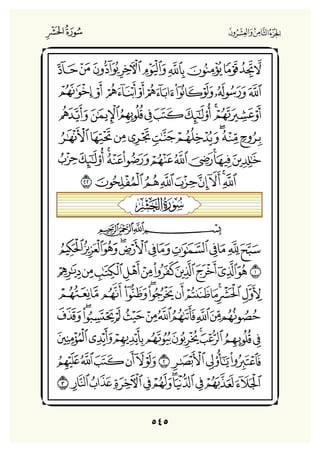 الجُزْءُ الثَّامِنُ وَالعِشْرُونَ
سُورَةُ الحَشْرِ
لَّا تَجِدُ قَوْمًا يُؤْمِنُونَ بِٱللَّهِ وَٱلْيَوْمِ ٱلْءَاخِرِ يُوَآدُّونَ مَنْ حَآدَّ
ٱللَّهَ وَرَسُولَهُۥ وَلَوْ كَانُوٓا۟ ءَابَآءَهُمْ أَوْ أَبْنَآءَهُمْ أَوْ إِخْوَٰنَهُمْ
أَوْ عَشِيرَتَهُمْ ۚ أُو۟لَٰٓئِكَ كَتَبَ فِى قُلُوبِهِمُ ٱلْإِيمَٰنَ وَأَيَّدَهُم
بِرُوحٍ مِّنْهُ ۖ وَيُدْخِلُهُمْ جَنَّٰتٍ تَجْرِى مِن تَحْتِهَا ٱلْأَنْهَٰرُ
خَٰلِدِينَ فِيهَا ۚ رَضِىَ ٱللَّهُ عَنْهُمْ وَرَضُوا۟ عَنْهُ ۚ أُو۟لَٰٓئِكَ حِزْبُ
ٱللَّهِ ۚ أَلَآ إِنَّ حِزْبَ ٱللَّهِ هُمُ ٱلْمُفْلِحُونَ ٢٢
سُورَةُ الحَشْرِ
بِسْمِ ٱللَّهِ ٱلرَّحْمَٰنِ ٱلرَّحِيمِ
سَبَّحَ لِلَّهِ مَا فِى ٱلسَّمَٰوَٰتِ وَمَا فِى ٱلْأَرْضِ ۖ وَهُوَ ٱلْعَزِيزُ ٱلْحَكِيمُ
١ هُوَ ٱلَّذِىٓ أَخْرَجَ ٱلَّذِينَ كَفَرُوا۟ مِنْ أَهْلِ ٱلْكِتَٰبِ مِن دِيَٰرِهِمْ
لِأَوَّلِ ٱلْحَشْرِ ۚ مَا ظَنَنتُمْ أَن يَخْرُجُوا۟ ۖ وَظَنُّوٓا۟ أَنَّهُم مَّانِعَتُهُمْ
حُصُونُهُم مِّنَ ٱللَّهِ فَأَتَىٰهُمُ ٱللَّهُ مِنْ حَيْثُ لَمْ يَحْتَسِبُوا۟ ۖ وَقَذَفَ
فِى قُلُوبِهِمُ ٱلرُّعْبَ ۚ يُخْرِبُونَ بُيُوتَهُم بِأَيْدِيهِمْ وَأَيْدِى ٱلْمُؤْمِنِينَ
فَٱعْتَبِرُوا۟ يَٰٓأُو۟لِى ٱلْأَبْصَٰرِ ٢ وَلَوْلَآ أَن كَتَبَ ٱللَّهُ عَلَيْهِمُ
ٱلْجَلَآءَ لَعَذَّبَهُمْ فِى ٱلدُّنْيَا ۖ وَلَهُمْ فِى ٱلْءَاخِرَةِ عَذَابُ ٱلنَّارِ ٣
٥٤٥